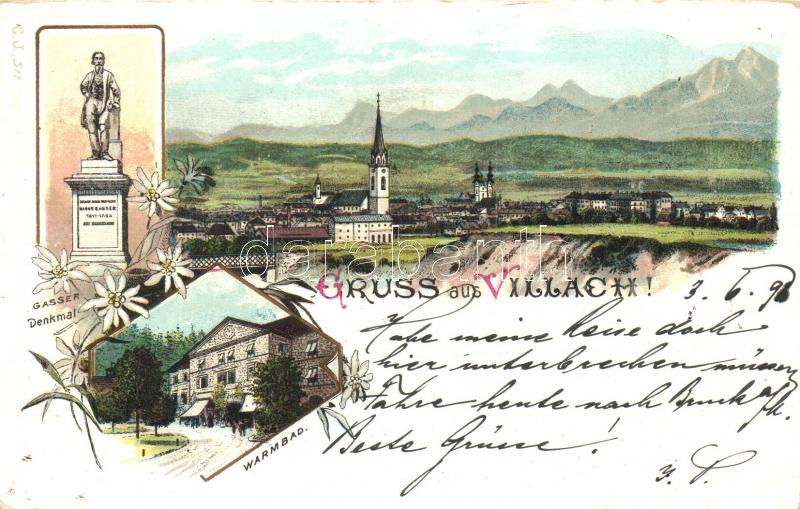 G.J. 511
HANS GASSER
1817-1868
GASSER
Denkmal
darabanth
GRUSS aus VILLACH!
3. 6. 98
Habe meine Reise doch
hier unterbrechen müssen
Fahre heute nach Bruck a/M.
Beste Grüsse!
WARMBAD.